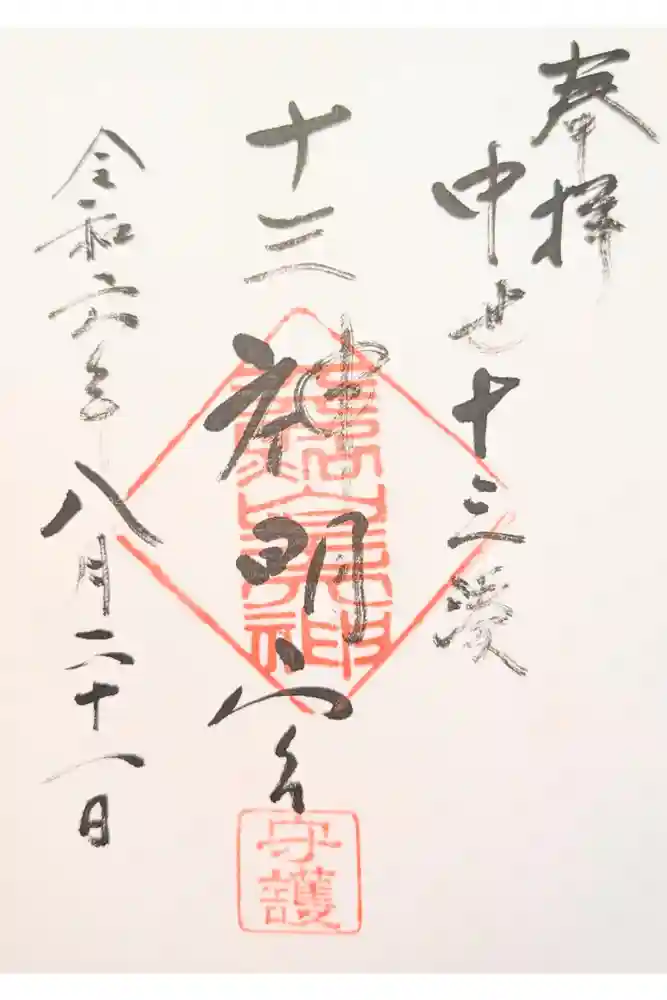 奉拝
中世十三湊
十三神明宮
守護
令和六年八月二十一日